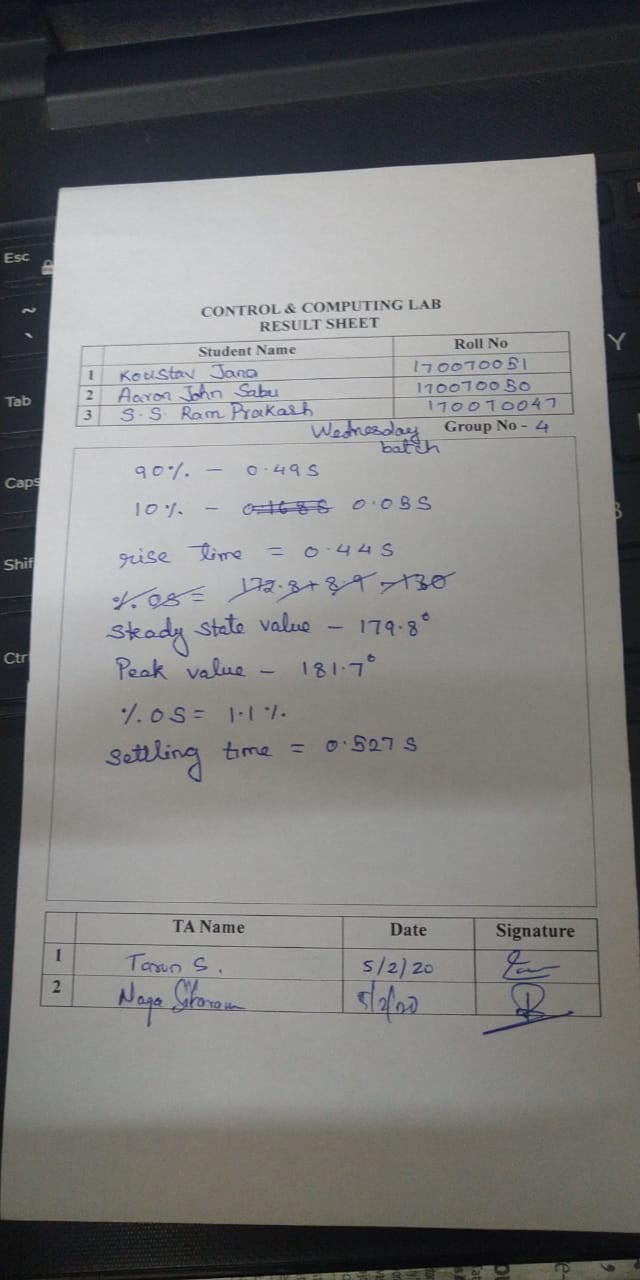 Esc
~
`
Tab
Caps
Shif
Ctr
Y
CONTROL & COMPUTING LAB
RESULT SHEET
Student Name Roll No
1 Koustav Jana 170070051
2 Aaron John Sabu 170070050
3 S.S. Ram Prakash 170070047
Wednesday batch Group No - 4
90%. - 0.49 S
10%. - 0.05 S
rise time = 0.44 S
%. OS = 172.8 + 8.9 - 130
Steady state value - 179.8°
Peak value - 181.7°
%. OS = 1.1 %.
Settling time = 0.527 S
TA Name Date Signature
1 Tarun S. 5/2/20
2 Naga 5/2/20